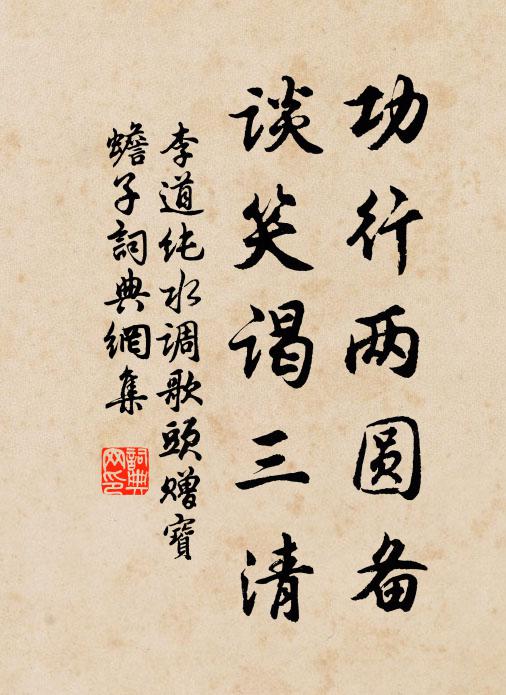 功行两圆备
谈笑谒三清
李道纯水调歌头赠宝
蟾子词典網集
詞典
网印